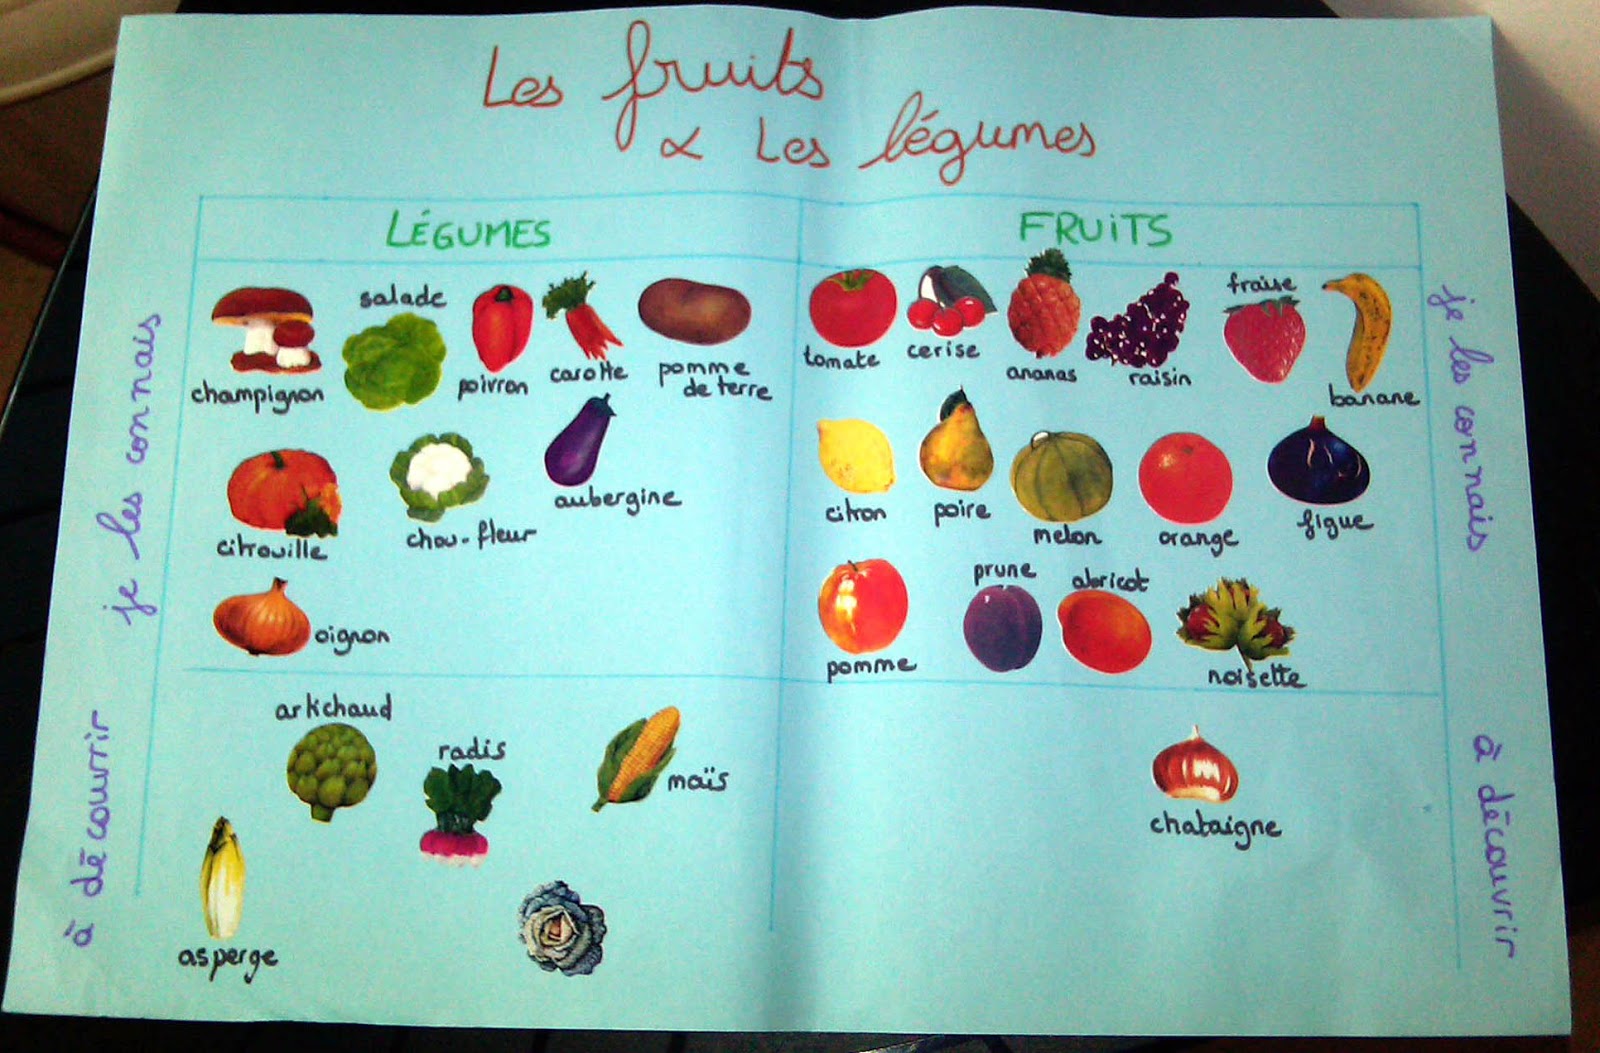 Les fruits
& Les légumes
LÉGUMES
FRUITS
je les connais
champignon
salade
poivron
carotte
pomme
de terre
citrouille
chou-fleur
aubergine
oignon
tomate
cerise
ananas
raisin
fraise
banane
citron
poire
melon
orange
figue
pomme
prune
abricot
noisette
je les connais
à découvrir
artichaud
radis
maïs
asperge
chataigne
à découvrir